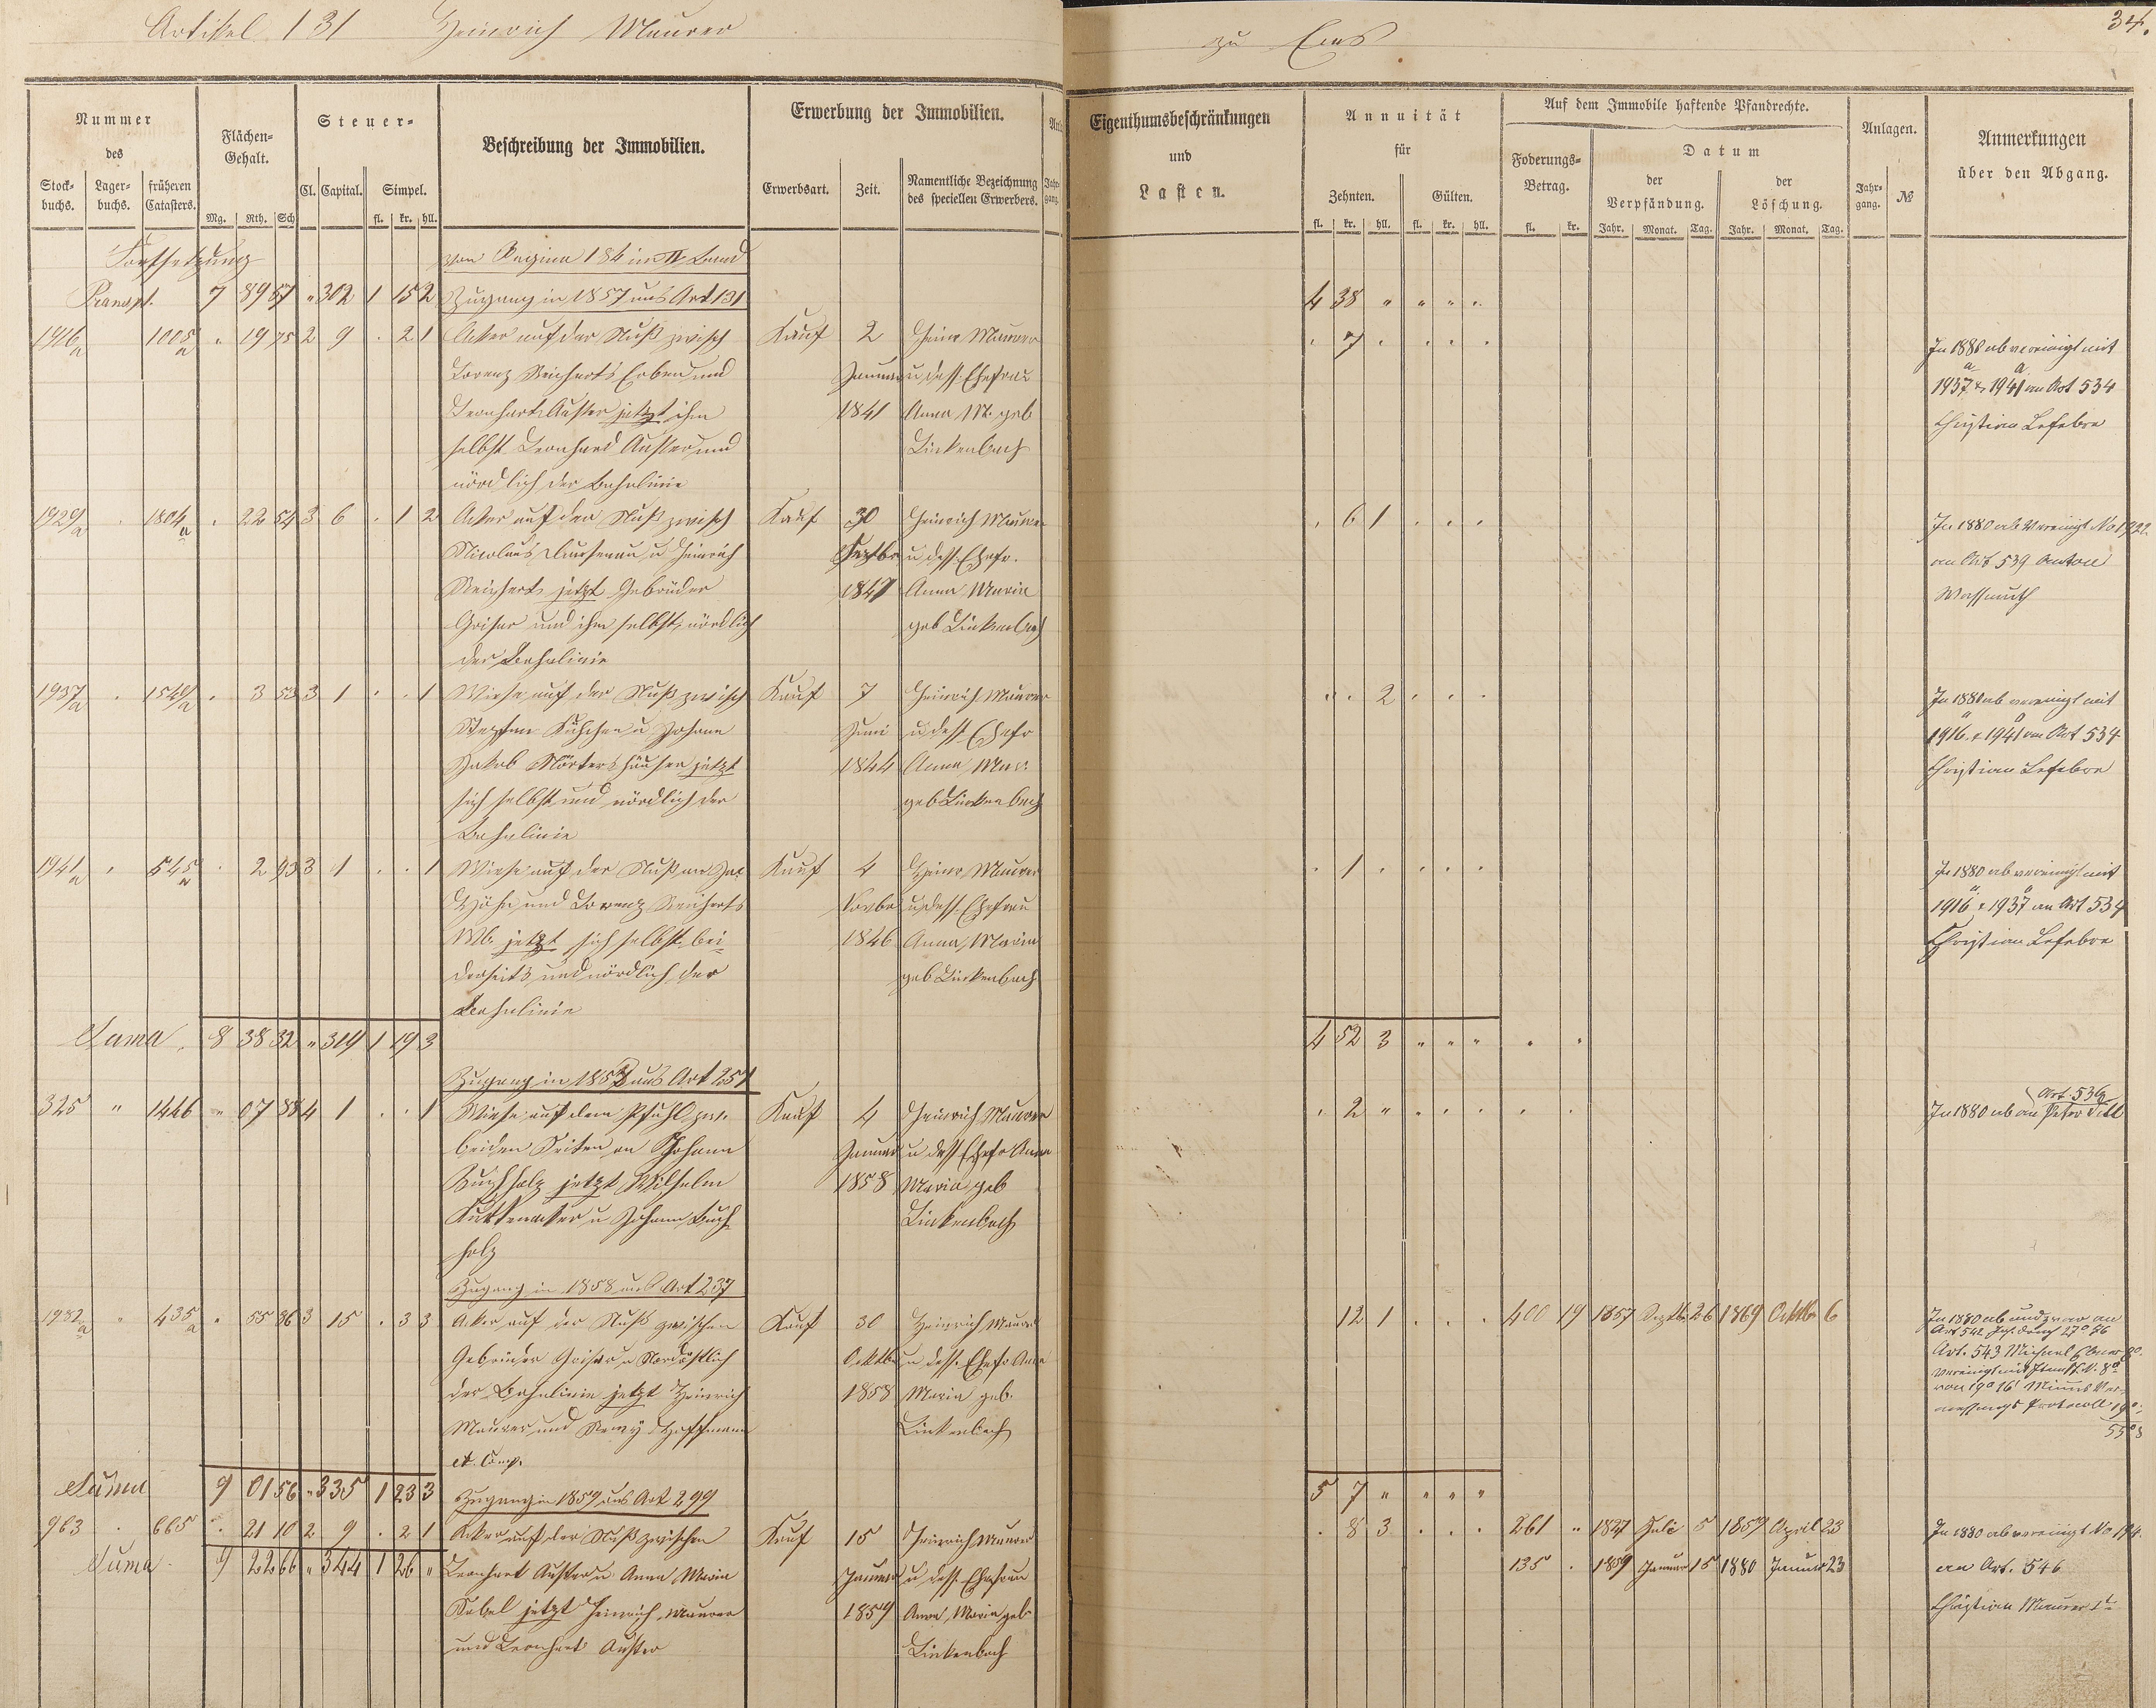 Artikel 131 Heinrich Maurer
zu Ems
34.
Nummer
des
Stock-
buchs.
Lager-
buchs.
früheren
Catasters.
Flächen-
Gehalt.
Mg. Rth. Sch
Steuer-
Cl. Capital. Simpel.
fl. kr. hll.
Beschreibung der Immobilien.
Erwerbung der Immobilien.
Erwerbsart. Zeit.
Namentliche Bezeichnung
des speciellen Erwerbers.
Jahr-
gang.
Eigenthumsbeschränkungen
und
Lasten.
Annuität
für
Zehnten. Gülten.
fl. kr. hll. fl. kr. hll.
Auf dem Immobile haftende Pfandrechte.
Foderungs-
Betrag.
fl. kr.
Datum
der
Verpfändung.
Jahr. Monat. Tag.
der
Löschung.
Jahr. Monat. Tag.
Anlagen.
Jahr-
gang. №
Anmerkungen
über den Abgang.
Fortsetzung von Pagina 184 im II Band
Transpt. 7 89 57 " 302 1 15 2 Zugang in 1857 aus Art 131 4 38 " " " "
1916 a 1005 a . 19 75 2 9 . 2 1 Acker auf der Nuß zwisch Kauf 2 Heinr Maurer . 7 . . . . In 1880 ab vereinigt mit
Lorenz Reicherts Erben und Januar u dess. Ehefrau 1937 a & 1941 a an Art 534
Leonhart Auster jetzt ihm 1841 Anna M. geb Christian Lefebre
selbst Leonhard Auster und Linkenbach
nördlich der Bahnlinie
1929 a . 1804 a . 22 54 3 6 . 1 2 Acker auf der Nuß zwisch Kauf 30 Heinrich Maurer . 6 1 . . . In 1880 ab Vereinigt No 1922
Nicolaus u Heinrich Septbr u dess. Ehefr. an Art 539 Anton
Reichert jetzt Gebrüder 1847 Anna Maria Wassmuth
und ihm selbst, nördlich geb Linkenbach
der Bahnlinie
1937 a . 1540 a . 3 53 3 1 . . 1 Wiese auf der Nuß zwisch Kauf 7 Heinrich Maurer " . 2 . . . In 1880 ab vereinigt mit
Stephan u Johann Juni u dess Ehefr 1916 a & 1941 a an Art 534
Jakob Mörtershäuser jetzt 1844 Anna Mar: Christian Lefebre
sich selbst und nördlich der geb Linkenbach
Bahnlinie
1941 a . 545 a . 2 93 3 1 . . 1 Wiese auf der Nuß an Kauf 4 Heinr Maurer . 1 . . . . In 1880 ab vereinigt mit
Höhn und Lorenz Reicherts Novbr u dess Ehefrau 1916 a & 1937 a an Art 534
Wb. jetzt sich selbst bei- 1846 Anna Maria Christian Lefebre
derseits und nördlich der geb Linkenbach
Bahnlinie
Suma 8 38 32 " 319 1 19 3 4 52 3 " " " . .
Zugang in 1858 aus Art 257
325 " 1446 " 07 88 4 1 . . 1 Wiese auf dem Pfuhl zw. Kauf 4 Heinrich Maurer . 2 " . . . . . Art. 536
In 1880 ab an Peter Dill
beiden Seiten an Johann Januar u dess Ehefr Anna
Buchholz jetzt Wilhelm 1858 Maria geb
u Johann Buch- Linkenbach
holz
Zugang in 1858 aus Art 237
1982 a " 435 a " 55 36 3 15 . 3 3 Acker auf der Nuß zwischen Kauf 30 Heinrich Maurer 12 1 . . . 400 19 1857 Dezbr 26 1869 Octbr 6 In 1880 ab und zwar an
Gebrüder u Nordöstlich Octbr u dess. Ehefr Anna Art 542
der Bahnlinie jetzt Heinrich 1858 Maria geb. Art. 543 Michael
Maurer und Remy Hoffmann Linkenbach
et Comp.
Suma 9 01 56 " 335 1 23 3 Zugang in 1859 aus Art 299 5 7 " " " "
963 . 665 . 21 10 2 9 . 2 1 Acker auf der Nuß zwischen Kauf 15 Heinrich Maurer . 8 3 . . . 261 " 1827 Juli 5 1859 April 23 In 1880 ab vereinigt No
Suma 9 22 66 " 344 1 26 " Leonhart Auster u Anna Maria Januar u dess Ehefrau 135 . 1859 Januar 15 1880 Januar 23 an Art. 546
jetzt Heinrich Maurer 1859 Anna Maria geb Christian Maurer 1r
und Leonhart Auster Linkenbach